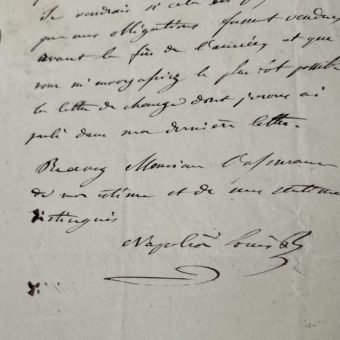 Je voudrais si cela se
que mes obligations fussent vendues
avant la fin de l'année, et que
vous m'envoyassiez le plus tôt possible
la lettre de change dont je vous ai
parlé dans ma dernière lettre.
Recevez Monsieur l'assurance
de mon estime et de mes sentimens
distingués
Napoléon Louis B